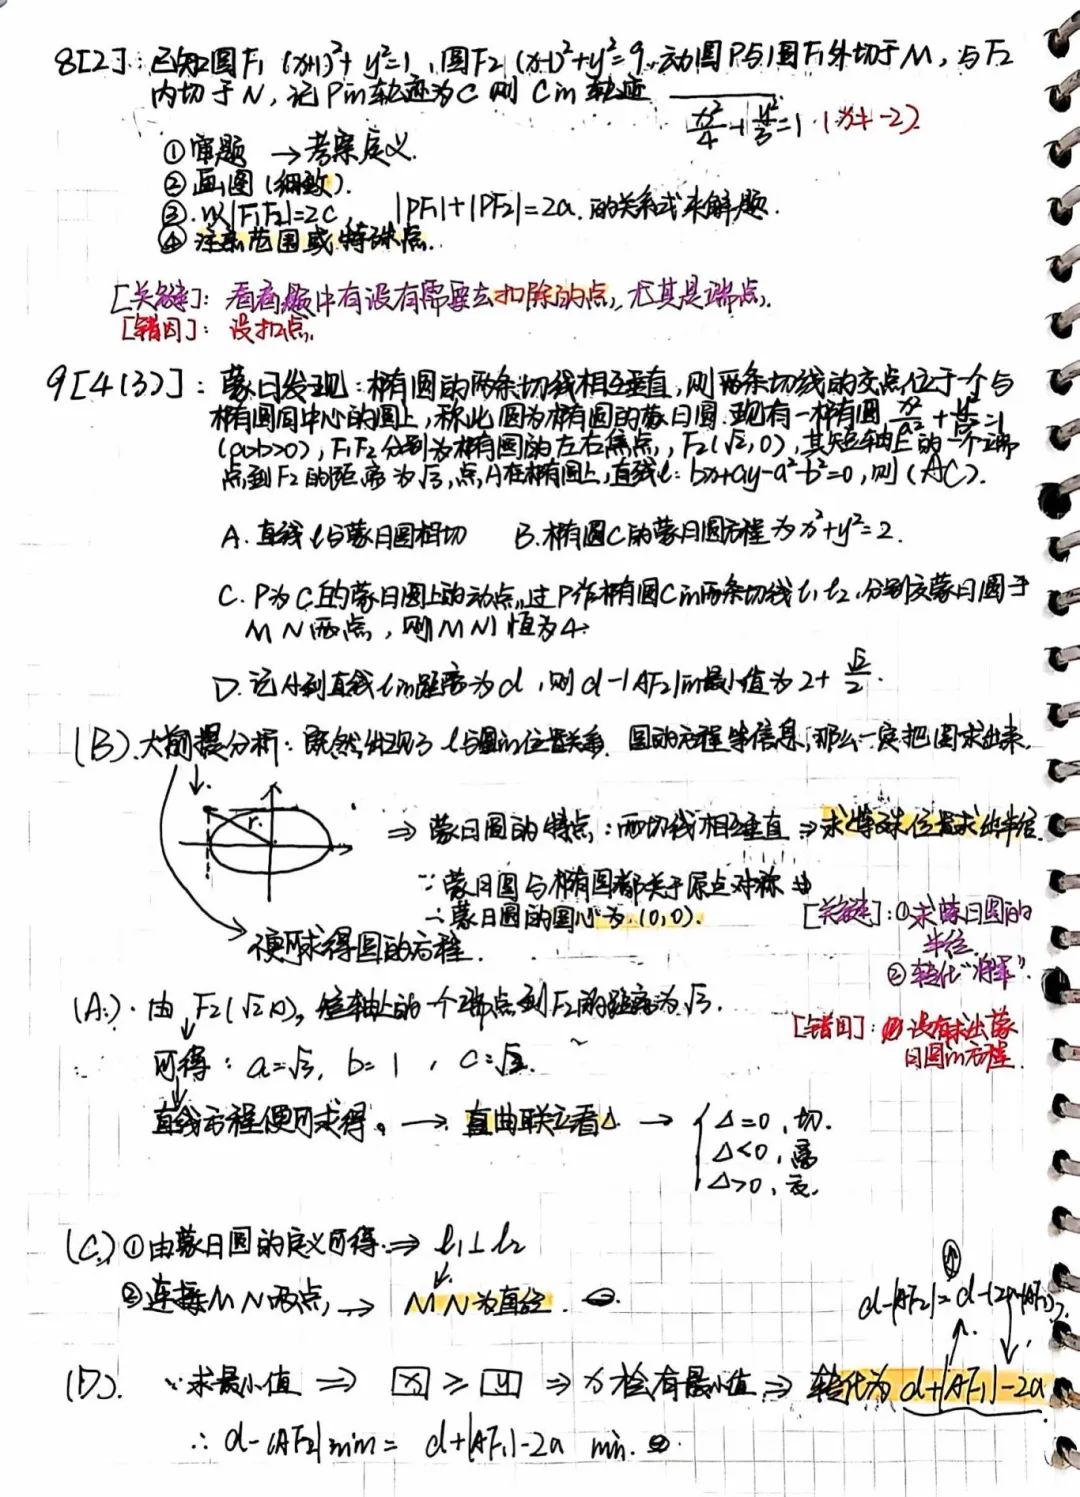 8[2]: 已知圆F₁ (x+1)²+y²=1,圆F₂ (x-1)²+y²=9,动圆P与圆F₁外切于M,与F₂
内切于N,记P in 轨迹为C 则 C in 轨迹
x²/4+y²/3=1 (x≠-2)
① 审题 → 考察定义.
② 画图(细致).
③.以|F₁F₂|=2C, |PF₁|+|PF₂|=2a.的关系式来解题.
④ 注意范围或特殊点.
[关键]: 看看题中有没有需要去扣除的点,尤其是端点.
[错因]: 没扣点.
9[4(3)]: 蒙日发现:椭圆的两条切线相互垂直,则两条切线的交点位于一个与
椭圆同中心的圆上,称此圆为椭圆的蒙日圆.现有一椭圆 x²/a²+y²/b²=1
(a>b>0),F₁F₂分别为椭圆的左右焦点,F₂(√2,0),其短轴上的一个端
点到F₂的距离为√3,点A在椭圆上,直线l:bx+ay-a²-b²=0,则(AC).
A.直线l与蒙日圆相切 B.椭圆C的蒙日圆方程为x²+y²=2.
C.P为C的蒙日圆上的动点,过P作椭圆C in 两条切线l₁l₂,分别交蒙日圆于
MN两点,则|MN|恒为4.
D.记A到直线l in 距离为d,则d-|AF₂| in 最小值为2+√2/2.
(B).大前提分析:既然出现了l与圆in位置关系,圆的方程等信息,那么一定把圆求出来.
r.
⇒ 蒙日圆的特点:两切线相互垂直 ⇒ 求特殊位置求出半径.
∵蒙日圆与椭圆都关于原点对称
∴蒙日圆的圆心为(0,0).
便可求得圆的方程.
[关键]:①求蒙日圆的
半径.
②转化
[错因]: 没有求出蒙
日圆in方程.
(A).由F₂(√2,0),短轴上的一个端点到F₂的距离为√3.
可得: a=√3, b=1, c=√2.
直线方程便可求得. → 直曲联立看△ → {△=0,切.
△<0,离
△>0,交.
(C)①由蒙日圆的定义可得 ⇒ l₁⊥l₂
②连接MN两点, → MN为直径.
d-|AF₂|=d-(2a-|AF₁|)
(D). ∵求最小值 ⇒ [x] ≥ [y] ⇒ x 会有最小值 ⇒ 转化为 d+|AF₁|-2a
∴ d-|AF₂| min = d+|AF₁|-2a min.